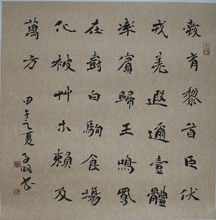 愛育黎首臣伏
戎羌遐邇壹體
率賓歸王鳴鳳
在樹白駒食場
化被草木賴及
萬方
甲午夏